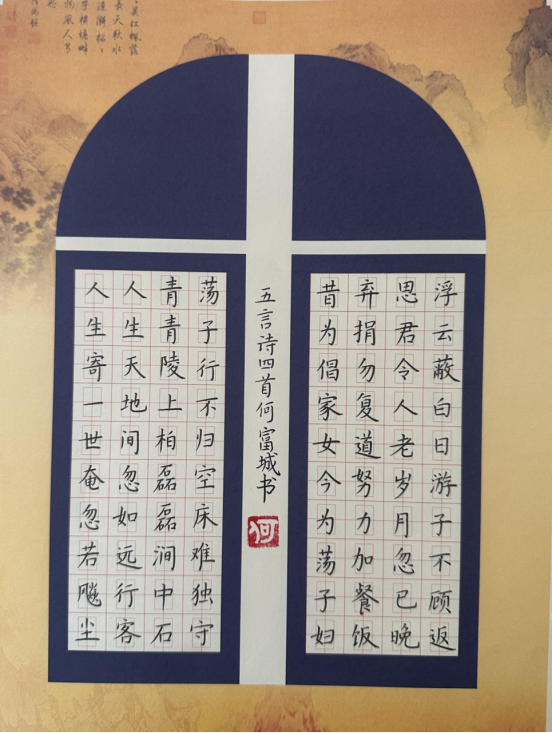 浮云蔽白日游子不顾返
思君令人老岁月忽已晚
弃捐勿复道努力加餐饭
昔为倡家女今为荡子妇
五言诗四首何富城书
何
荡子行不归空床难独守
青青陵上柏磊磊涧中石
人生天地间忽如远行客
人生寄一世奄忽若飚尘
吴江枫落
长天秋水